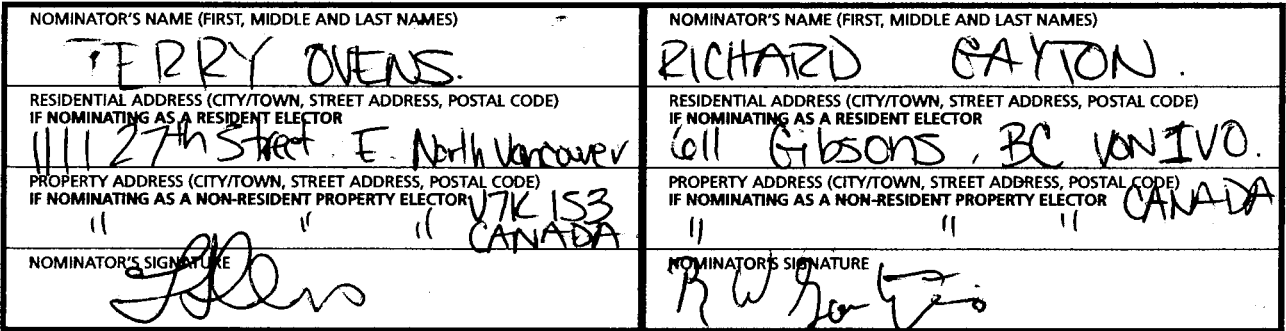 NOMINATOR'S NAME (FIRST, MIDDLE AND LAST NAMES)
TERRY OVENS.
RESIDENTIAL ADDRESS (CITY/TOWN, STREET ADDRESS, POSTAL CODE)
IF NOMINATING AS A RESIDENT ELECTOR
1111 27th Street E. North Vancouver
PROPERTY ADDRESS (CITY/TOWN, STREET ADDRESS, POSTAL CODE)
IF NOMINATING AS A NON-RESIDENT PROPERTY ELECTOR V7K 1S3
" " " CANADA
NOMINATOR'S SIGNATURE
NOMINATOR'S NAME (FIRST, MIDDLE AND LAST NAMES)
RICHARD GAYTON.
RESIDENTIAL ADDRESS (CITY/TOWN, STREET ADDRESS, POSTAL CODE)
IF NOMINATING AS A RESIDENT ELECTOR
611 Gibsons, BC V0N 1V0.
PROPERTY ADDRESS (CITY/TOWN, STREET ADDRESS, POSTAL CODE)
IF NOMINATING AS A NON-RESIDENT PROPERTY ELECTOR CANADA
" " "
NOMINATOR'S SIGNATURE
R W